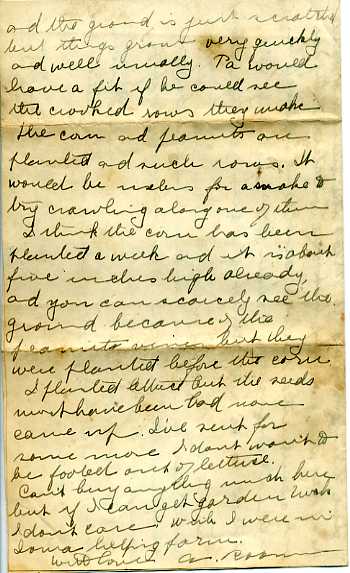 ad the ground is just scratched
but things grow very quickly
ad well usually. Pa would
have a fit if he could see
the crooked rows they make
The corn ad peanuts are
planted ad such rows. It
would be useless for a snake to
try crawling along one of them
I think the corn has been
planted a week and it is about
five inches high already,
ad you can scarcely see the
ground because of the
peanuts vines but they
were planted before the corn
I planted lettuce but the seeds
must have been bad none
came up. I've sent for
some more I dont want to
be fooled out of lettuce.
Can't buy anything much here
but if I can get garden
I don't care. Wish I were in
Iowa helping farm.
With Love